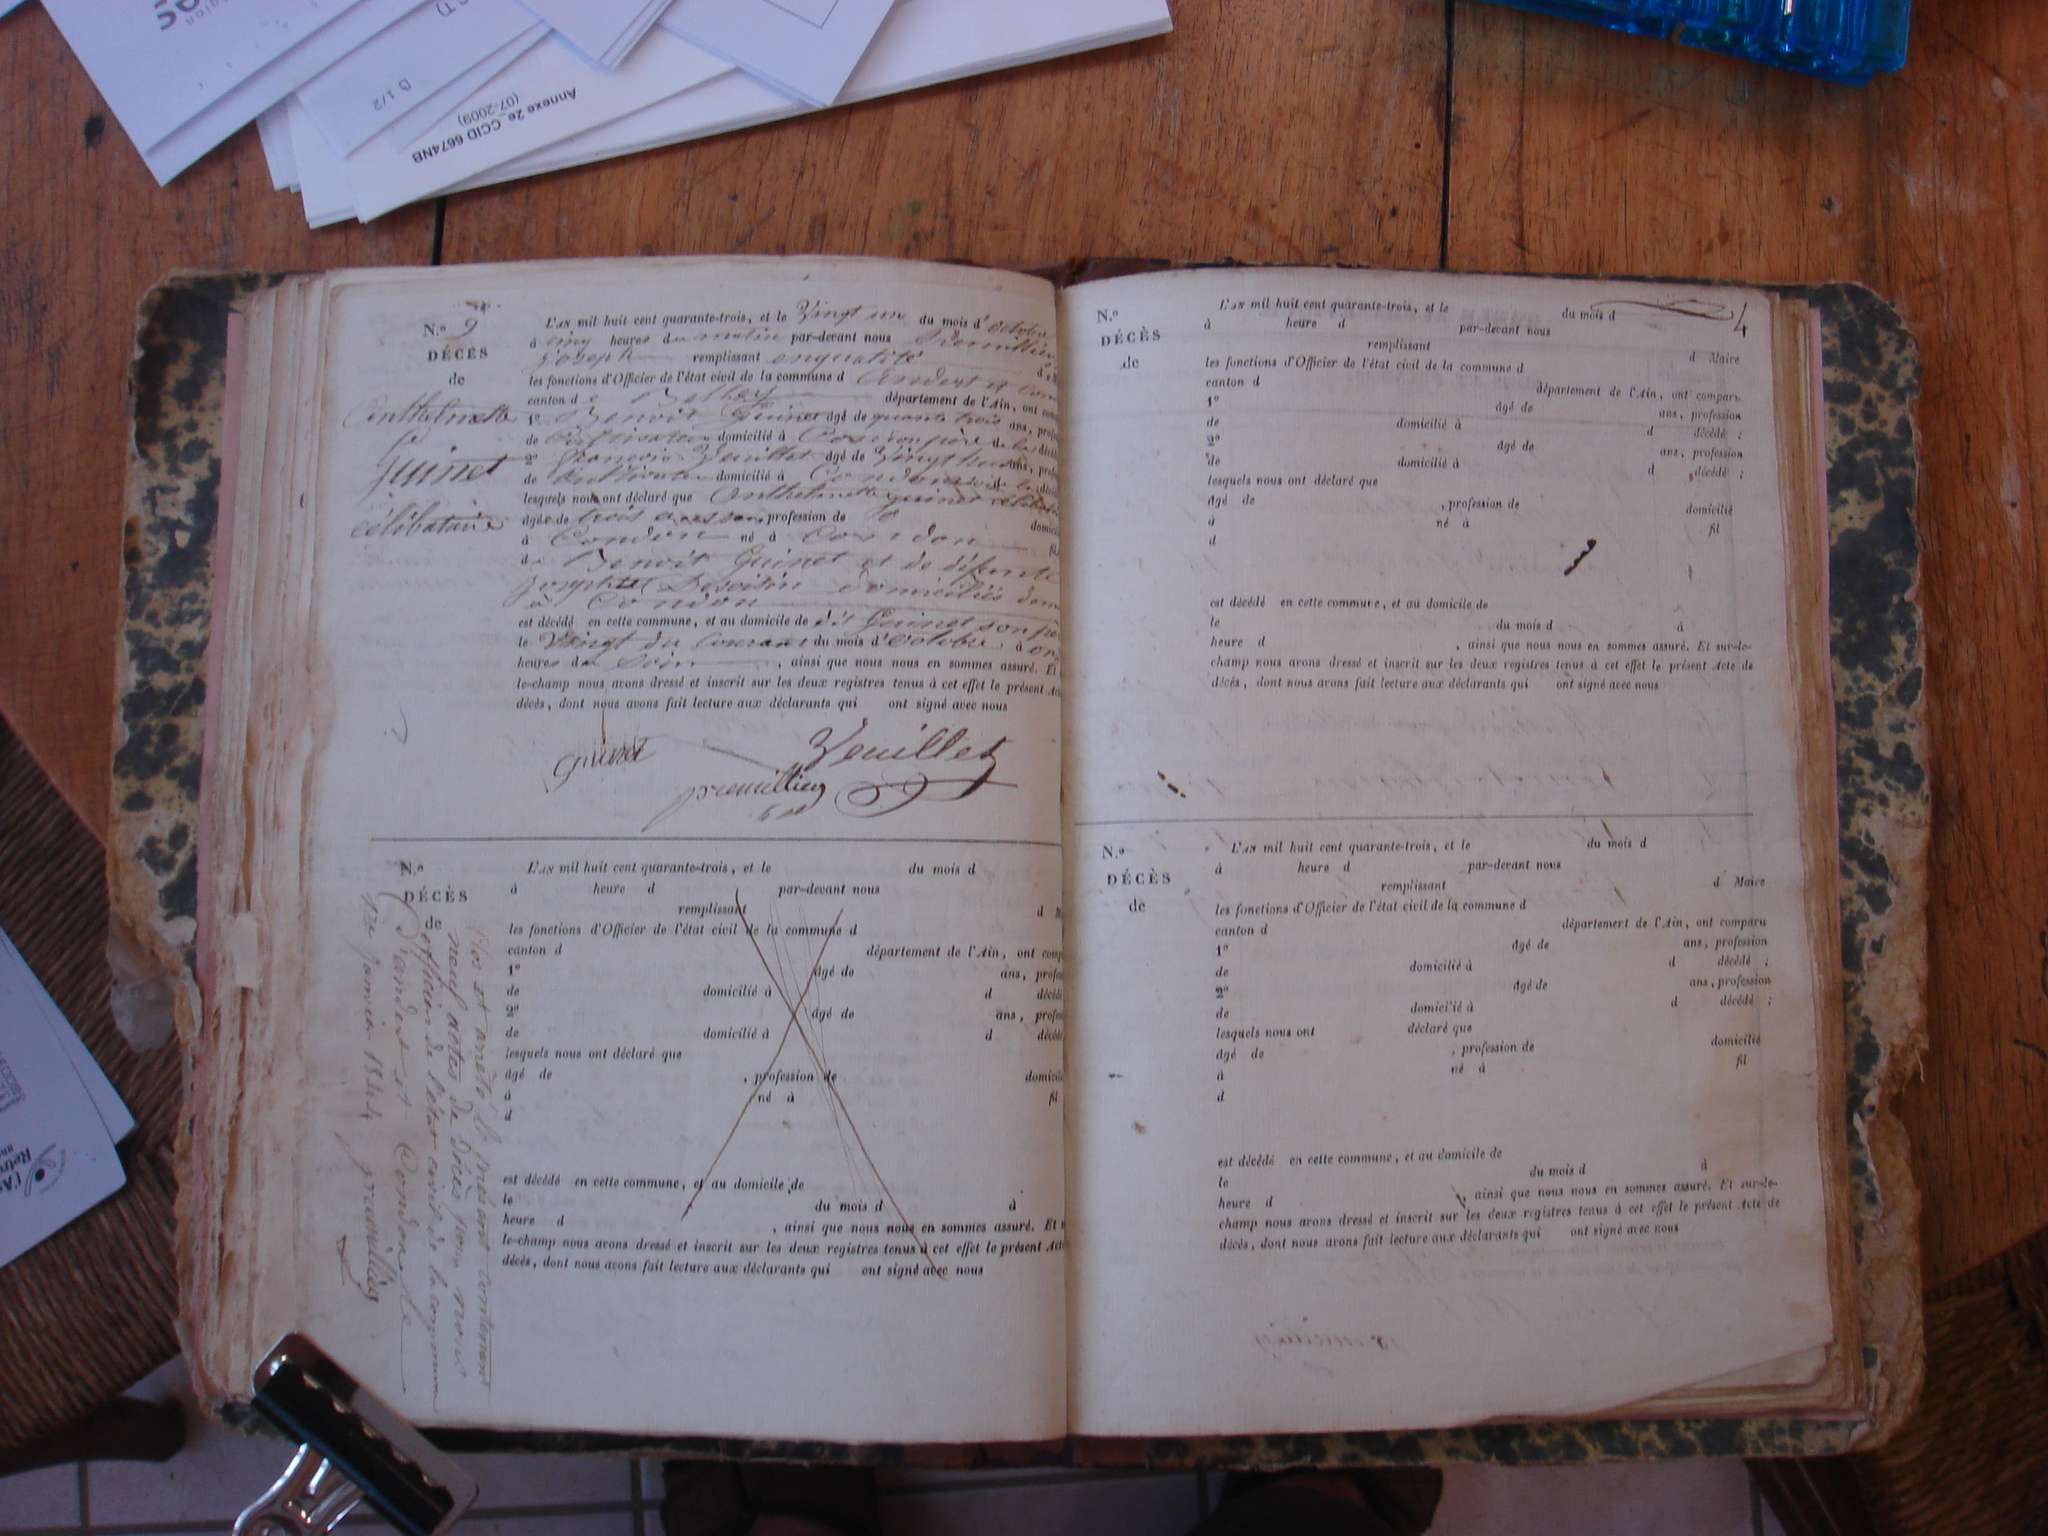 D 1/2
Annexe 2e_CCID 6674NB
(07-2009)
N.º 9
DÉCÈS
de
Anthelmette
Guinet
célibataire
L'AN mil huit cent quarante-trois, et le Vingt un du mois d'Octobre
à cinq heures du matin par-devant nous
Joseph remplissant
les fonctions d'Officier de l'état civil de la commune d'Andert et Con
canton de Belley département de l'Ain, ont comp
1º Benoit Guinet âgé de quarante trois ans, profes
de Cultivateur domicilié à Condon père de la décé
2º François Veuillet âgé de Vingt ans, profes
de Cultivateur domicilié à Condon
lesquels nous ont déclaré que Anthelmette Guinet célibataire
âgée de trois profession de domicil
à Condon né à Condon fil
de Benoit Guinet et de défunte
Josephte domiciliés
à Condon
est décédé en cette commune, et au domicile de dit Guinet son père
le Vingt du Courant du mois d'Octobre à onze
heures du Soir , ainsi que nous nous en sommes assuré. Et
le-champ nous avons dressé et inscrit sur les deux registres tenus à cet effet le présent Acte
décès, dont nous avons fait lecture aux déclarants qui ont signé avec nous
Guinet
Veuillet
premillieu
N.º
DÉCÈS
de
L'AN mil huit cent quarante-trois, et le du mois d
à heure d par-devant nous
remplissant d M
les fonctions d'Officier de l'état civil de la commune d
canton d département de l'Ain, ont comp
1º âgé de ans, profes
de domicilié à d décédé
2º âgé de ans, profes
de domicilié à d décédé
lesquels nous ont déclaré que
âgé de , profession de domicil
à né à fil
d
est décédé en cette commune, et au domicile de
le du mois d à
heure d , ainsi que nous nous en sommes assuré. Et
le-champ nous avons dressé et inscrit sur les deux registres tenus à cet effet le présent Acte
décès, dont nous avons fait lecture aux déclarants qui ont signé avec nous
Clos et arrêté le présent contenant
neuf actes de Décès par nous
officier de l'état civil de la commune
d'Andert et Condon le
janvier 1844 premillieu
4
N.º
DÉCÈS
de
L'AN mil huit cent quarante-trois, et le du mois d
à heure d par-devant nous
remplissant d Maire
les fonctions d'Officier de l'état civil de la commune d
canton d département de l'Ain, ont comparu
1º âgé de ans, profession
de domicilié à d décédé ;
2º âgé de ans, profession
de domicilié à d décédé ;
lesquels nous ont déclaré que
âgé de , profession de domicilié
à né à fil
d
est décédé en cette commune, et au domicile de
le du mois d à
heure d , ainsi que nous nous en sommes assuré. Et sur-le-
champ nous avons dressé et inscrit sur les deux registres tenus à cet effet le présent Acte de
décès, dont nous avons fait lecture aux déclarants qui ont signé avec nous
N.º
DÉCÈS
de
L'AN mil huit cent quarante-trois, et le du mois d
à heure d par-devant nous
remplissant d Maire
les fonctions d'Officier de l'état civil de la commune d
canton d département de l'Ain, ont comparu
1º âgé de ans, profession
de domicilié à d décédé ;
2º âgé de ans, profession
de domicilié à d décédé ;
lesquels nous ont déclaré que
âgé de , profession de domicilié
à né à fil
d
est décédé en cette commune, et au domicile de
le du mois d à
heure d , ainsi que nous nous en sommes assuré. Et sur-le-
champ nous avons dressé et inscrit sur les deux registres tenus à cet effet le présent Acte de
décès, dont nous avons fait lecture aux déclarants qui ont signé avec nous